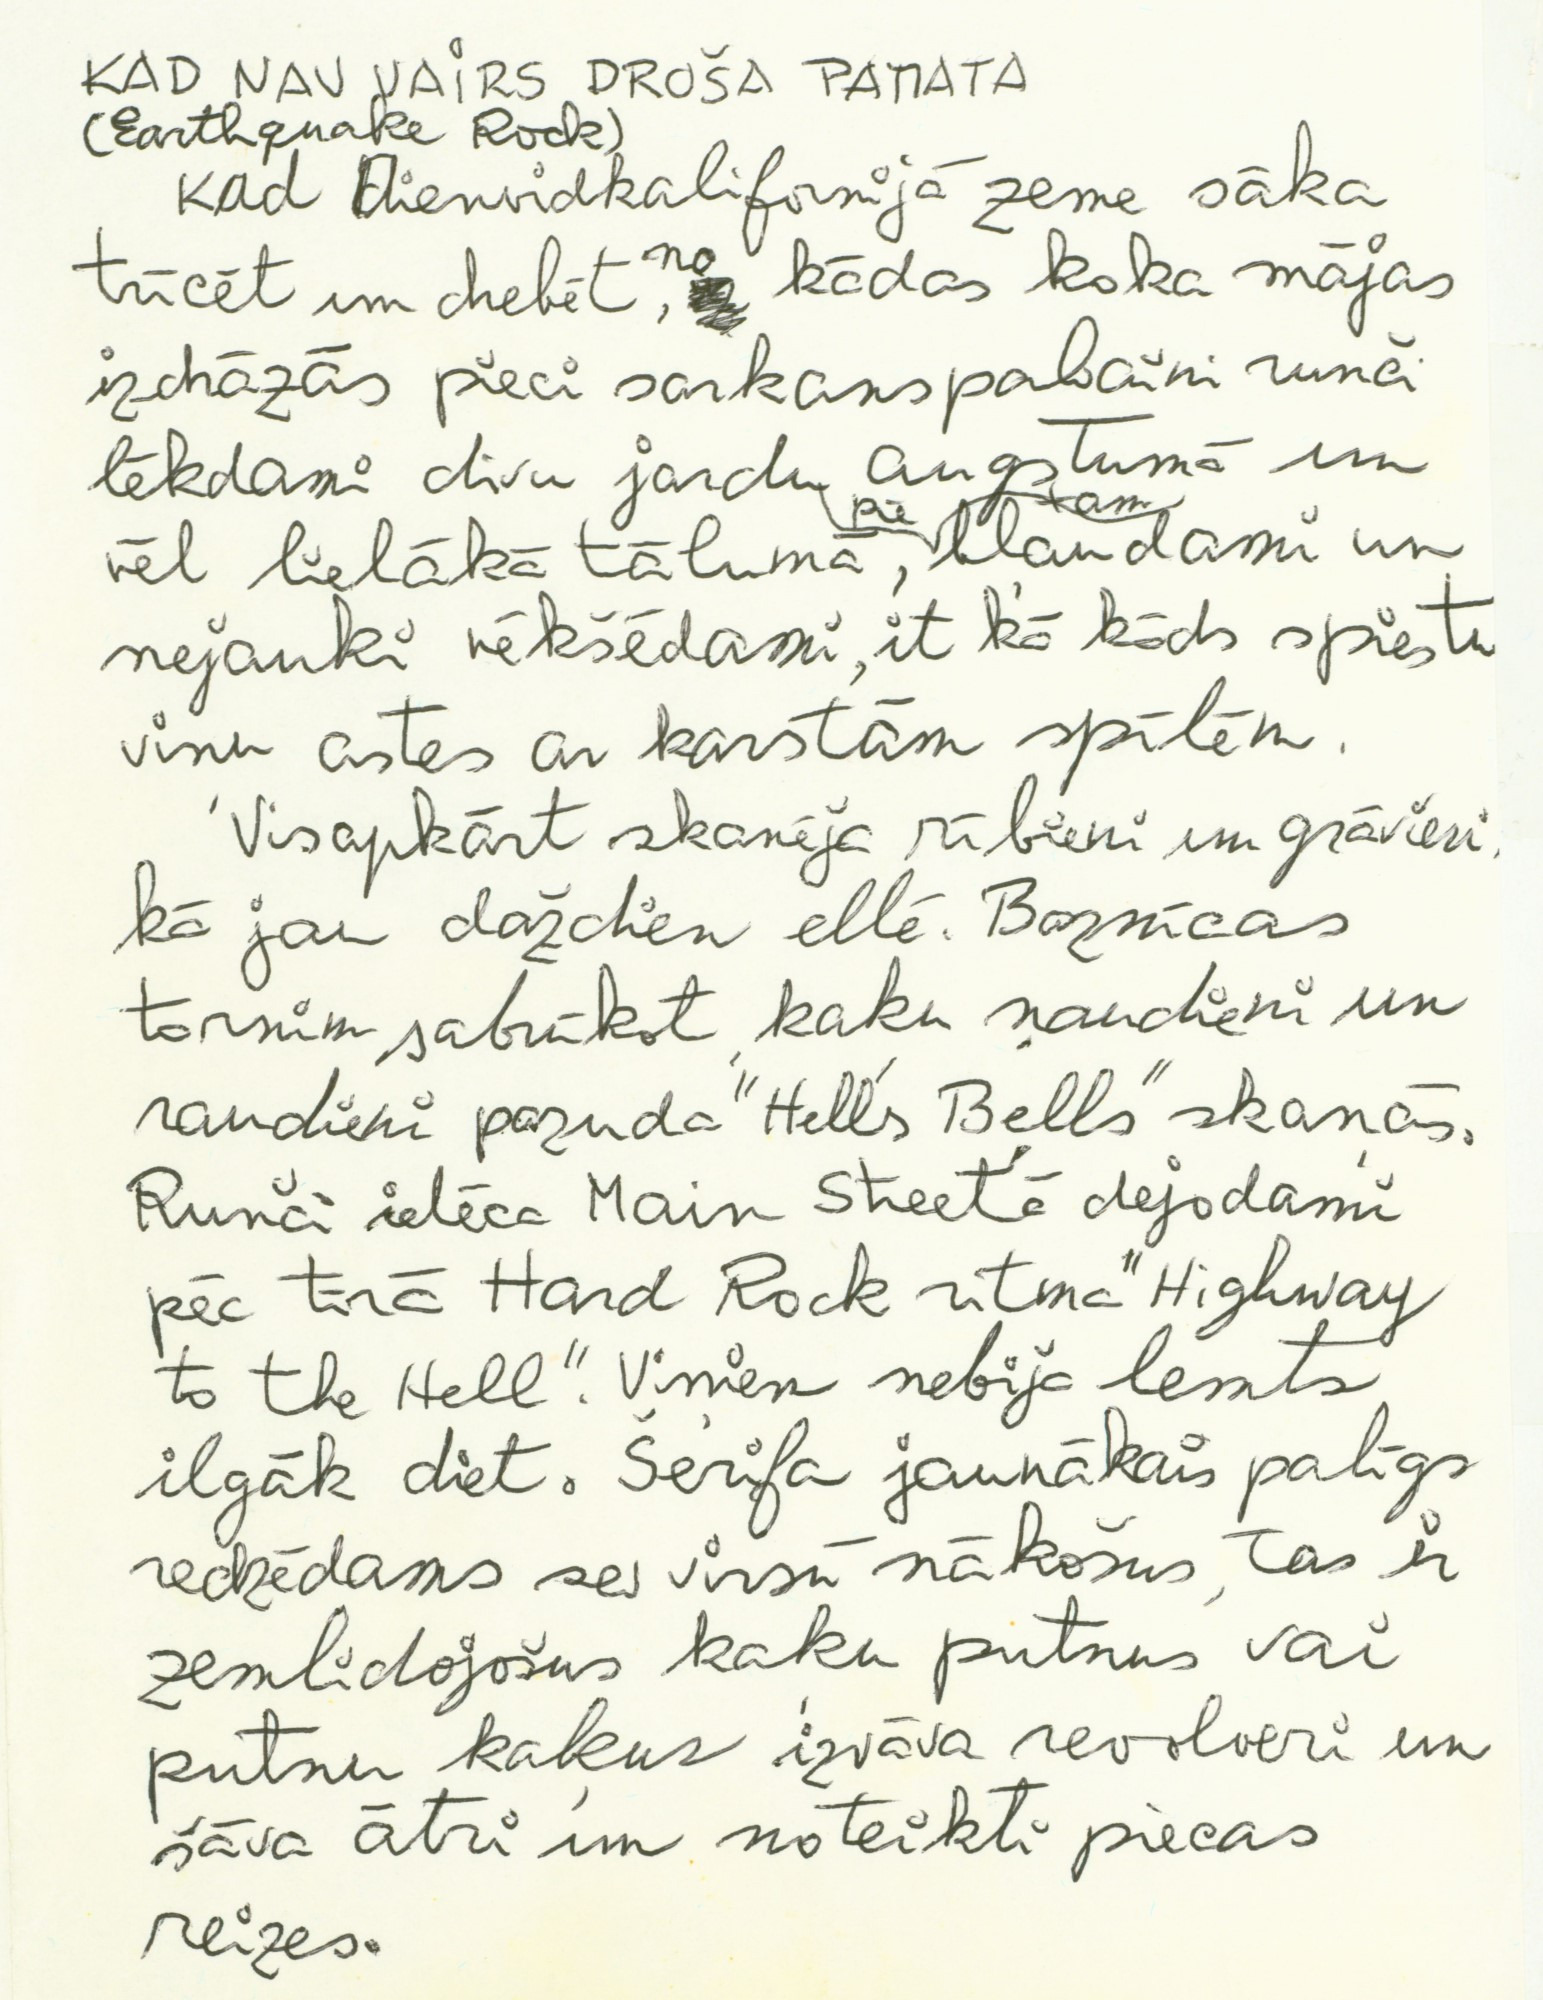 KAD NAV VAIRS DROŠA PAMATA
(Earthquake Rock)
Kad Dienvidkalifornijā zeme sāka
trīcēt un drebēt, no kādas koka mājas
izdrāzās pieci sarkanspalvaini runči
lēkdami divu jardu augstumā un
vēl lielākā tālumā, pie tam blaudami un
nejauki vēkšēdami, it kā kāds spiestu
viņu astes ar karstām spīlēm.
Visapkārt skanēja rībieni un grāvieni,
kā jau daždien ellē. Baznīcas
tornim sabrūkot, kaķu ņaudieni un
raudieni pazuda "Hell's Bells" skaņās.
Runči ielēca Main Street'ā dejodami
pēc tīrā Hard Rock ritma "Highway
to the Hell". Viņiem nebija lemts
ilgāk diet. Šerifa jaunākais palīgs
redzēdams sev virsū nākošus, tas ir
zemlidojošus kaķu putnus vai
putnu kaķus izvāva revolveri un
šāva ātri un noteikti piecas
reizes.